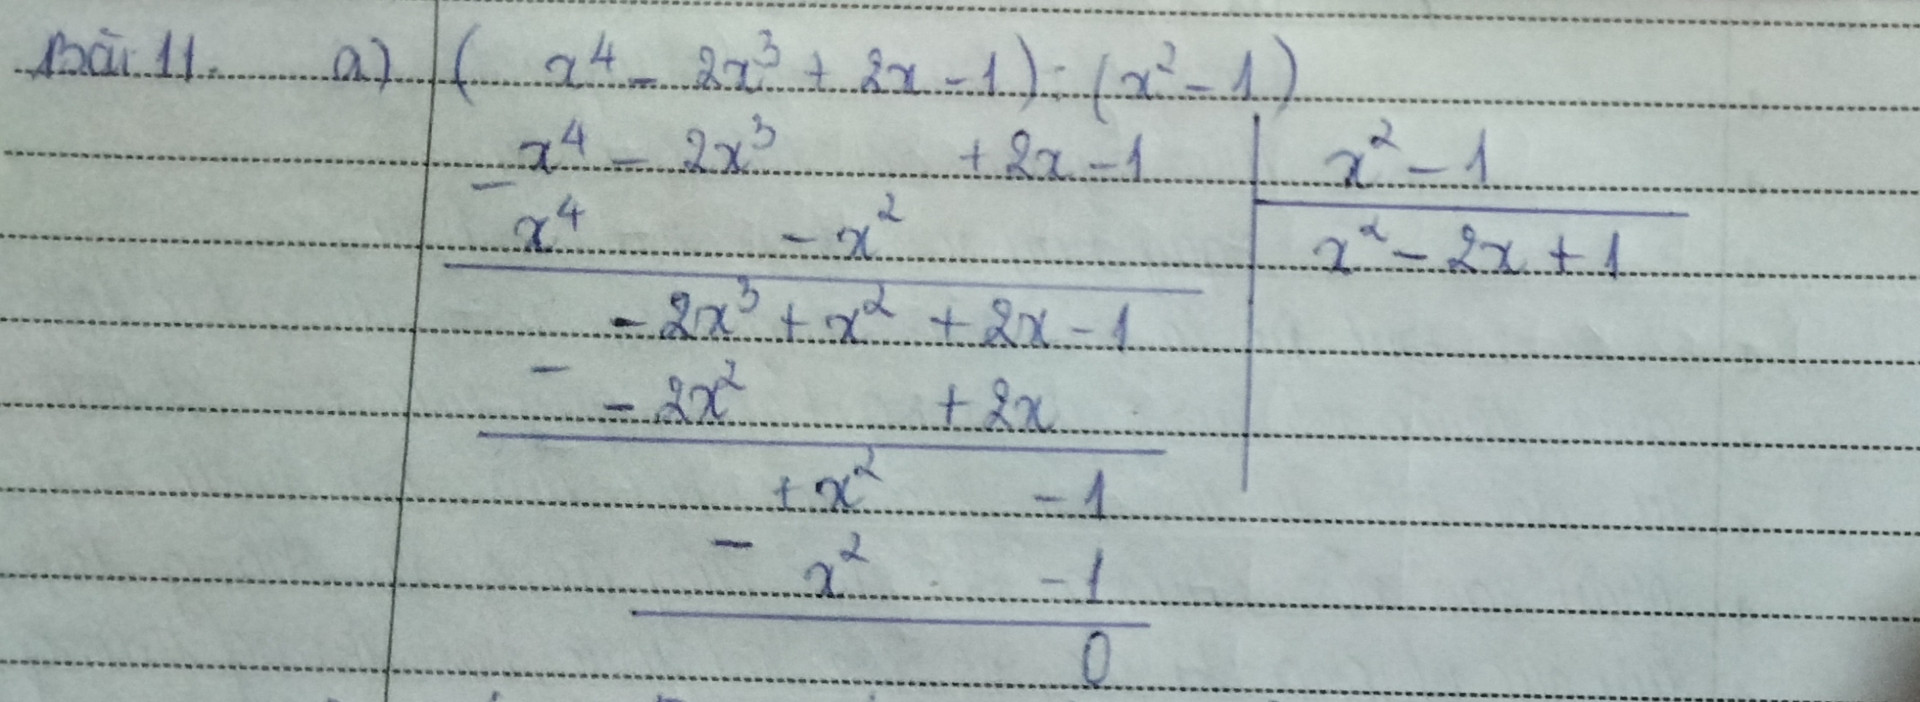 Bài 11. a) ( x⁴ - 2x³ + 2x - 1) : (x² - 1)
x⁴ - 2x³ + 2x - 1 | x² - 1
-
x⁴ - x² | x² - 2x + 1
- 2x³ + x² + 2x - 1
-
- 2x² + 2x
+ x² - 1
-
x² - 1
0